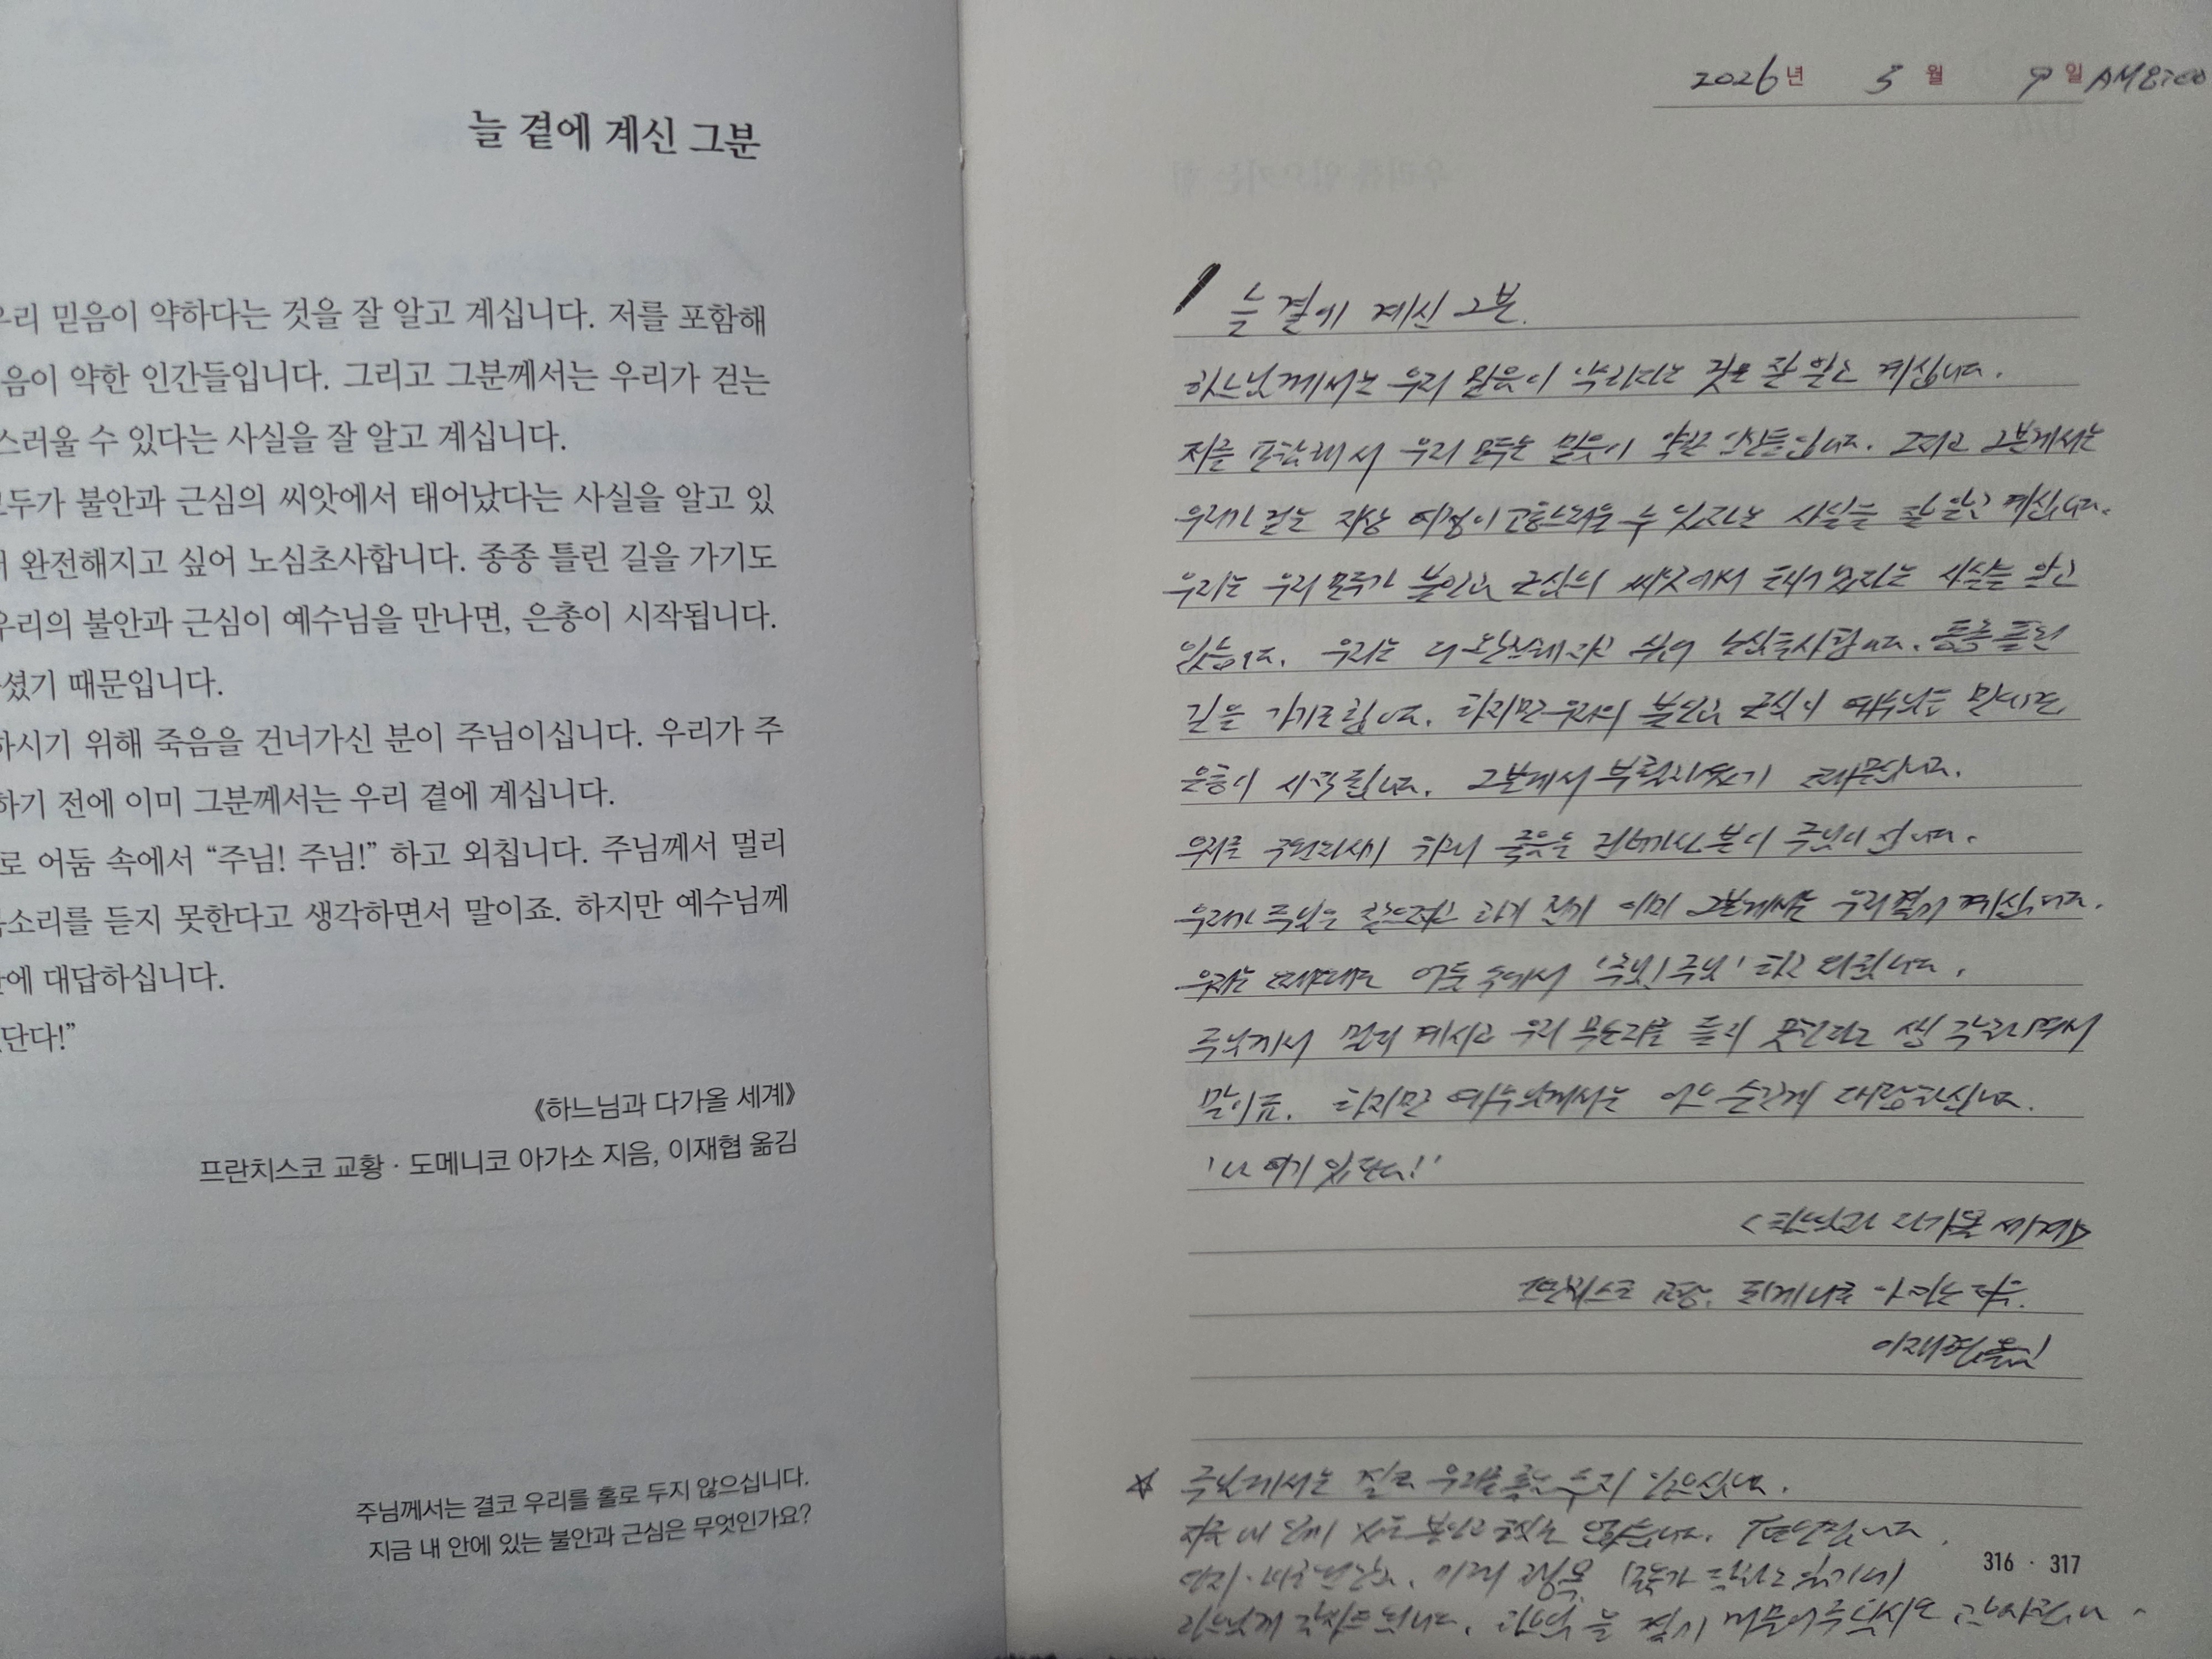 늘 곁에 계신 그분
우리 믿음이 약하다는 것을 잘 알고 계십니다. 저를 포함해
음이 약한 인간들입니다. 그리고 그분께서는 우리가 걷는
스러울 수 있다는 사실을 잘 알고 계십니다.
모두가 불안과 근심의 씨앗에서 태어났다는 사실을 알고 있
완전해지고 싶어 노심초사합니다. 종종 틀린 길을 가기도
우리의 불안과 근심이 예수님을 만나면, 은총이 시작됩니다.
셨기 때문입니다.
하시기 위해 죽음을 건너가신 분이 주님이십니다. 우리가 주
하기 전에 이미 그분께서는 우리 곁에 계십니다.
로 어둠 속에서 “주님! 주님!” 하고 외칩니다. 주님께서 멀리
소리를 듣지 못한다고 생각하면서 말이죠. 하지만 예수님께
에 대답하십니다.
단다!”
《하느님과 다가올 세계》
프란치스코 교황 · 도메니코 아가소 지음, 이재협 옮김
주님께서는 결코 우리를 홀로 두지 않으십니다.
지금 내 안에 있는 불안과 근심은 무엇인가요?
2026년 5월 9일 AM8:00
늘 곁에 계신 그분.
하느님께서는 우리 믿음이 약하다는 것을 잘 알고 계십니다.
저를 포함해서 우리 모두는 믿음이 약한 인간들입니다. 그리고 그분께서는
우리가 걷는 지상 여정이 고통스러울 수 있다는 사실을 잘 알고 계십니다.
우리는 우리 모두가 불안과 근심의 씨앗에서 태어났다는 사실을 알고
있습니다. 우리는 더 완전해지고 싶어 노심초사합니다. 종종 틀린
길을 가기도 합니다. 하지만 우리의 불안과 근심이 예수님을 만나면,
은총이 시작됩니다. 그분께서 부활하셨기 때문입니다.
우리를 구원하시기 위해 죽음을 건너가신 분이 주님이십니다.
우리가 주님을 찾으려고 하기 전에 이미 그분께서는 우리 곁에 계십니다.
우리는 때때로 어둠 속에서 '주님! 주님' 하고 외칩니다.
주님께서 멀리 계시고 우리 목소리를 듣지 못한다고 생각하면서
말이죠. 하지만 예수님께서는 어느 순간에 대답하십니다.
'나 여기 있단다!'
<하느님과 다가올 세계>
프란치스코 교황. 도메니코 아가소 지음.
이재협 옮김
☆ 주님께서는 결코 우리를 홀로 두지 않으십니다.
지금 내 안에 있는 불안과 근심은 없습니다.
모두가 있기에
하느님께 감사드립니다. 하느님 늘 곁에 머물러주십시오 감사합니다.
316 · 317